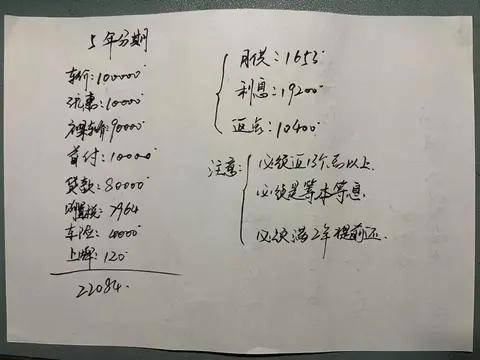 5年分期
车价:100000
优惠:10000
裸车价:90000
首付:10000
贷款:80000
购置税:7964
车险:4000
上牌:120
22084
月供:1653
利息:19200
返点:10400
注意:
必须返13个点以上
必须是等本等息
必须满2年提前还